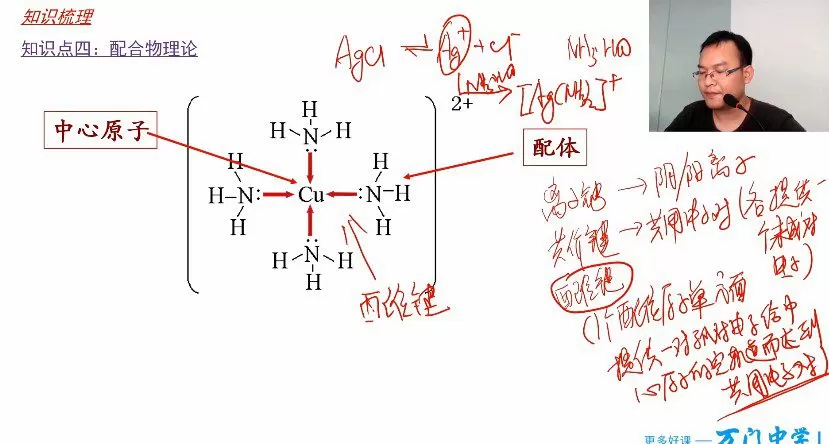 知识梳理
知识点四：配合物理论
AgCl ⇌ Ag⁺ + Cl⁻
NH₃·H₂O
[Ag(NH₃)₂]⁺
2+
中心原子
配体
H
H N H
H
H N: Cu :N H
H
H
N H
H
配位键
离子键 → 阴阳离子
共价键 → 共用电子对（各提供一个未成对电子）
配位键
（1个配位原子单方面
提供一对孤对电子给中
心原子的空轨道而达到
共用电子对）
更多好课 — 万门中学